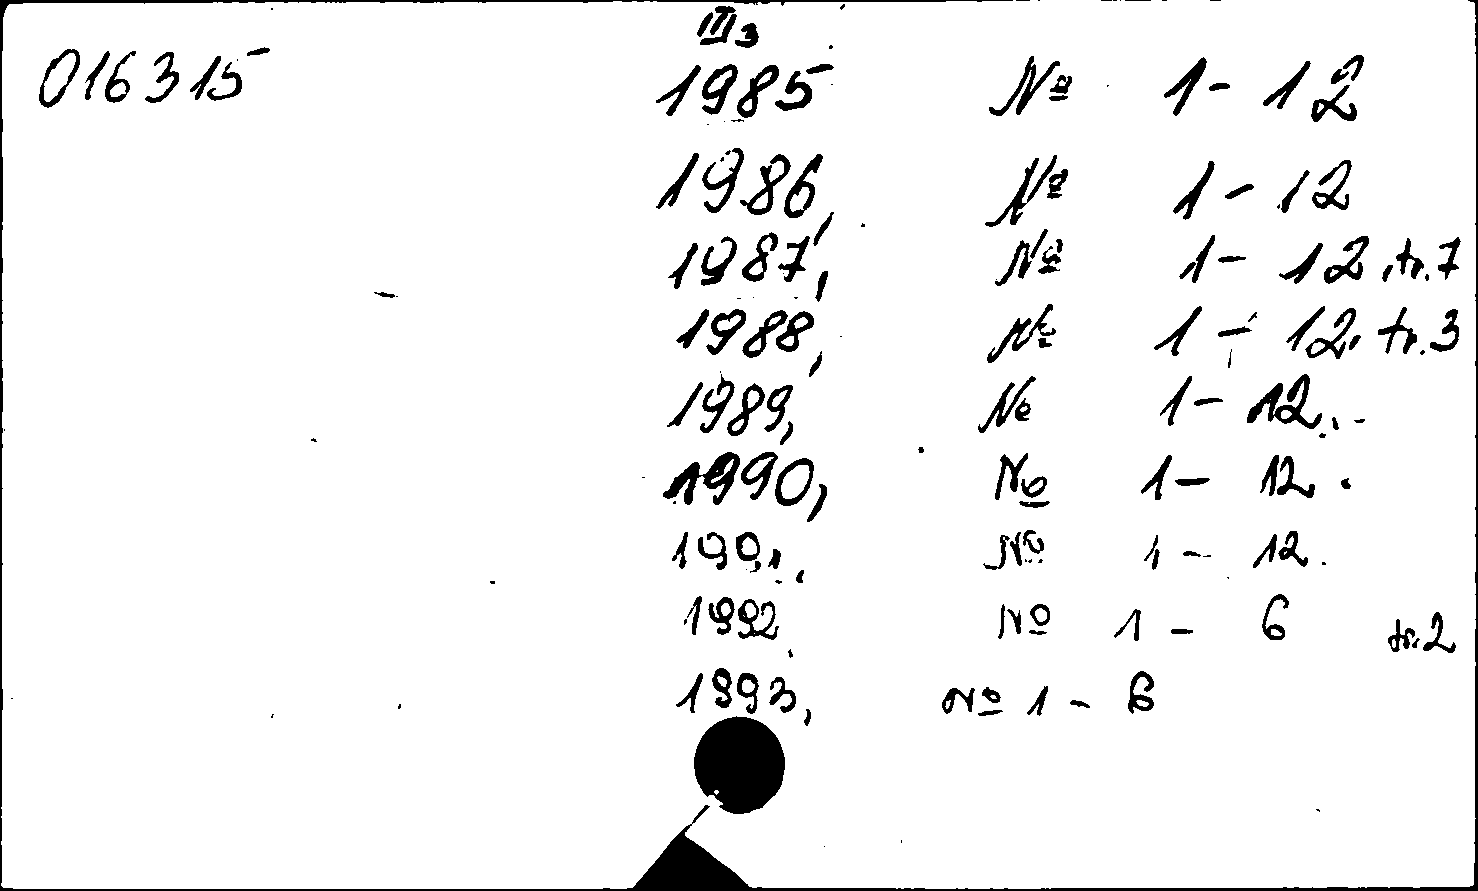 III3
016315 1985 № 1-12
1986, № 1-12
1987, № 1-12, tr.7
1988, № 1-12, tr.3
1989, № 1-12.
1990, № 1-12.
1991. № 1-12.
1992 № 1-6 tr.2
1993, № 1-6